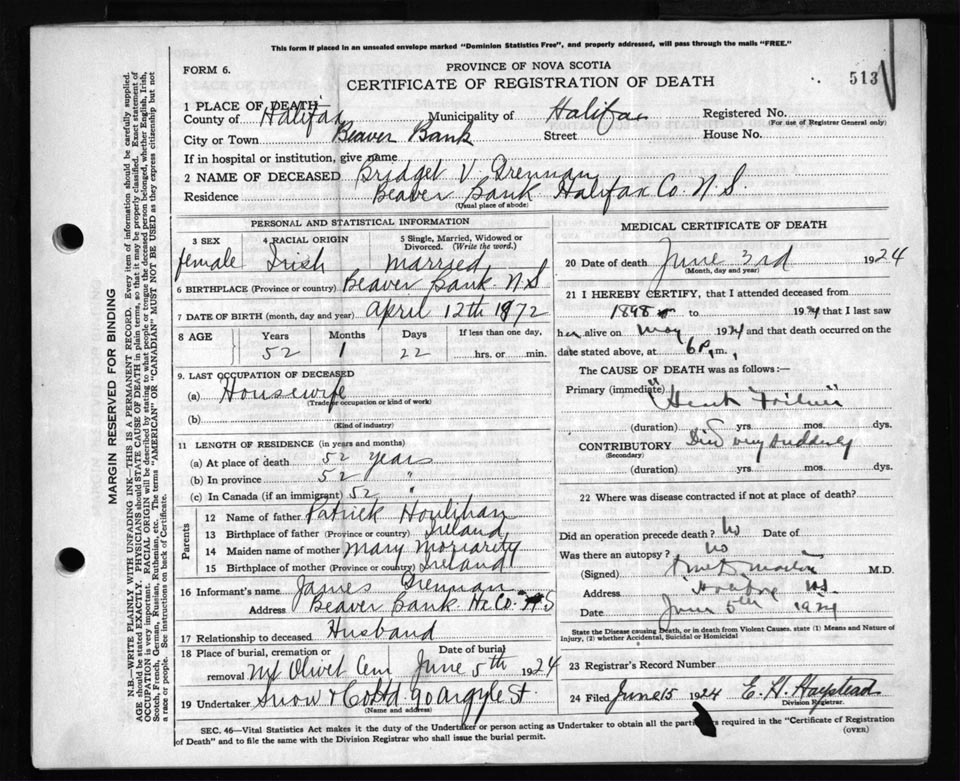 This form if placed in an unsealed envelope marked "Dominion Statistics Free", and properly addressed, will pass through the mails "FREE."
FORM 6.
PROVINCE OF NOVA SCOTIA
CERTIFICATE OF REGISTRATION OF DEATH
513
1 PLACE OF DEATH
County of Halifax Municipality of Halifax Registered No.
(For use of Registrar General only)
City or Town Beaver Bank Street House No.
If in hospital or institution, give name
2 NAME OF DECEASED Bridget V. Drennan
Residence Beaver Bank Halifax Co. N.S.
(Usual place of abode)
PERSONAL AND STATISTICAL INFORMATION
3 SEX 4 RACIAL ORIGIN 5 Single, Married, Widowed or Divorced. (Write the word.)
female Irish Married
6 BIRTHPLACE (Province or country) Beaver Bank N S
7 DATE OF BIRTH (month, day and year) April 12th 1872
8 AGE Years Months Days If less than one day,
52 1 22 hrs. or min.
9. LAST OCCUPATION OF DECEASED
(a) Housewife
(Trade occupation or kind of work)
(b)
(Kind of industry)
11 LENGTH OF RESIDENCE (in years and months)
(a) At place of death 52 years
(b) In province 52 "
(c) In Canada (if an immigrant) 52 "
Parents
12 Name of father Patrick Houlihan
13 Birthplace of father (Province or country) Ireland
14 Maiden name of mother Mary Moriarity
15 Birthplace of mother (Province or country) Ireland
16 Informant's name James Drennan
Address Beaver Bank Hx Co. N S
17 Relationship to deceased Husband
18 Place of burial, cremation or removal Mt Olivet Cem Date of burial June 5th 1924
19 Undertaker Snow & Co Ltd 90 Argyle St.
(Name and address)
MEDICAL CERTIFICATE OF DEATH
20 Date of death June 3rd 1924
(Month, day and year)
21 I HEREBY CERTIFY, that I attended deceased from
1898 to 1924 that I last saw
her alive on May 1924 and that death occurred on the
date stated above, at 6 P. m.
The CAUSE OF DEATH was as follows:—
Primary (immediate) "Heart Failure"
(duration) yrs. mos. dys.
CONTRIBUTORY Died very suddenly
(Secondary)
(duration) yrs. mos. dys.
22 Where was disease contracted if not at place of death?
Did an operation precede death? No Date of
Was there an autopsy? No
(Signed) M.D.
Address
Date June 5th 1924
State the Disease causing Death, or in death from Violent Causes, state (1) Means and Nature of Injury, (2) whether Accidental, Suicidal or Homicidal
23 Registrar's Record Number
24 Filed June 15 1924 E. H.
Division Registrar.
SEC. 46—Vital Statistics Act makes it the duty of the Undertaker or person acting as Undertaker to obtain all the particulars required in the "Certificate of Registration
of Death" and to file the same with the Division Registrar who shall issue the burial permit.
(OVER)
MARGIN RESERVED FOR BINDING
N.B.—WRITE PLAINLY WITH UNFADING INK—THIS IS A PERMANENT RECORD. Every item of information should be carefully supplied.
AGE should be stated EXACTLY. PHYSICIANS should STATE CAUSE OF DEATH in plain terms, so that it may be properly classified. Exact statement of
OCCUPATION is very important. RACIAL ORIGIN will be described by stating to what people or tongue the deceased person belonged, whether English, Irish,
Scotch, French, German, Russian, Ruthenian, etc. The terms "AMERICAN" OR "CANADIAN" MUST NOT BE USED as they express citizenship but not
a race or people. See instructions on back of Certificate.